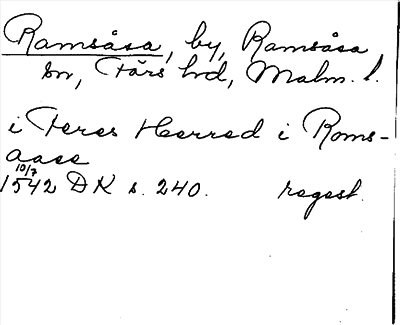 Ramsåsa, by, Ramsåsa
sn, Färs hd, Malm. l.
i Feres Herred i Roms-
aase
10/7
1542 DK s. 240. regest.